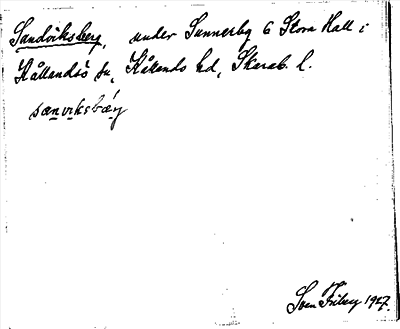 Sandviksberg, under Sunnerby 6 Stora Hall i
Kållandsö sn, Kållands hd, Skarab. l.
sanviksbæry
Sven Friberg 1927.